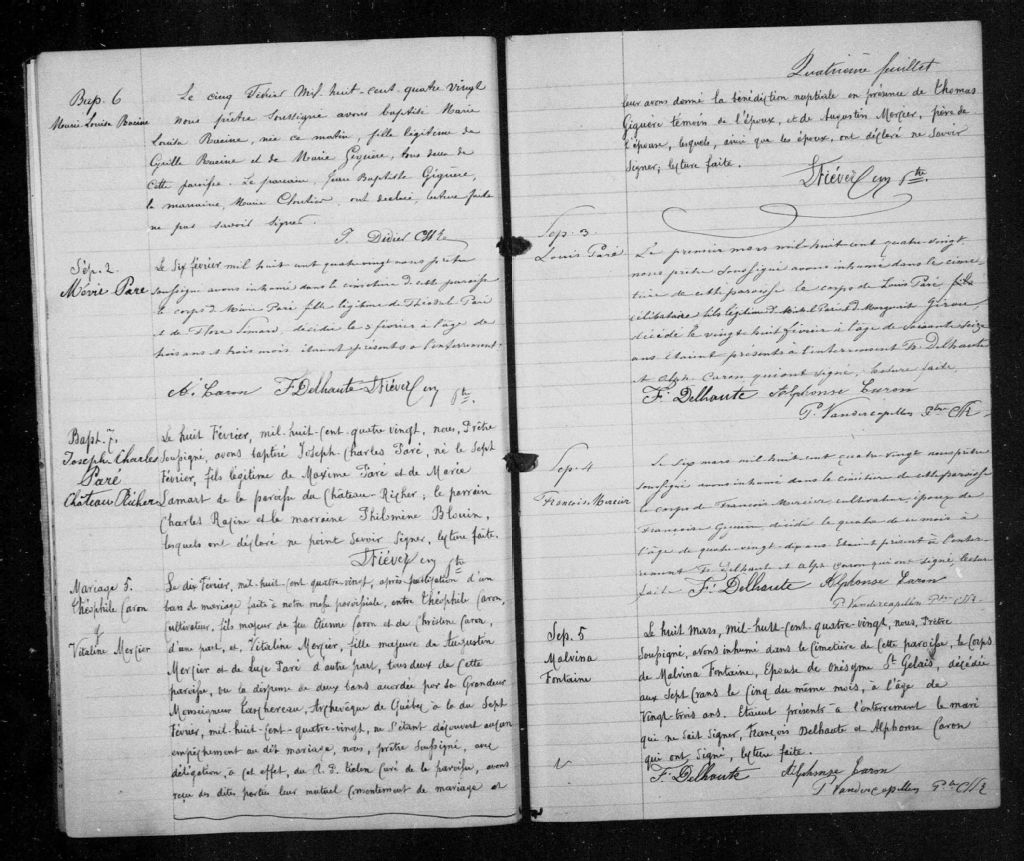 Bap. 6
Marie Louise Racine
Le cinq Février Mil huit-cent quatre vingt
nous prêtre soussigné avons baptisé Marie
Louise Racine, née ce matin, fille légitime de
Cyrille Racine et de Marie Giguère, tous deux de
cette paroisse. Le parrain, Jean Baptiste Giguère,
la marraine, Marie Cloutier, ont déclaré, lecture faite
ne pas savoir signer.
Sép. 2.
Paré
Le six février mil huit cent quatre vingt nous prêtre
soussigné avons inhumé dans le cimetière de cette paroisse
le corps de Paré fille légitime de Paré
et de Flore Simard, décédée le 3 février à l'âge de
trois ans et trois mois étaient présents à l'enterrement.
A. Caron F. Delhaute
Bapt. 7.
Joseph-Charles
Paré
Château Richer
Le huit Février, mil-huit-cent quatre vingt, nous, Prêtre
soussigné, avons baptisé Joseph-Charles Paré, né le sept
Février, fils légitime de Maxime Paré et de Marie
de la paroisse du Château-Richer; le parrain
Charles Racine et la marraine Philomine Blouin,
lesquels ont déclaré ne point savoir signer, lecture faite.
Mariage 5.
Théophile Caron
&
Vitaline Mercier
Le dix Février, mil-huit-cent quatre-vingt, après publication d'un
ban de mariage faite à notre messe paroissiale, entre Théophile Caron,
Cultivateur, fils majeur de feu Etienne Caron et de Christine Caron,
d'une part, et, Vitaline Mercier, fille majeure de Augustin
Mercier et de Luce Paré d'autre part, tous deux de cette
paroisse, vu la dispense de deux bans accordée par sa Grandeur
Monseigneur Taschereau, Archevêque de Québec à la du Sept
Février, mil-huit-cent-quatre-vingt, ne s'étant découvert aucun
empêchement au dit mariage, nous, prêtre soussigné, avec
délégation à cet effet, du R. P. curé de la paroisse, avons
reçu des dites parties leur mutuel consentement de mariage et
Quatrième feuillet
leur avons donné la bénédiction nuptiale en présence de Thomas
Giguère témoin de l'époux, et de Augustin Mercier, père de
l'épouse, lesquels, ainsi que les époux, ont déclaré ne savoir
signer, lecture faite.
Sep. 3
Louis Paré
Le premier mars mil-huit cent quatre-vingt,
nous prêtre soussigné avons inhumé dans le cime-
tière de cette paroisse le corps de Louis Paré, fils
célibataire fils légitime de Michel Paré et de Marguerite
décédé le vingt huit février à l'âge de soixante seize
ans étaient présents à l'enterrement Fr. Delhaute
et Alph. Caron qui ont signé, lecture faite,
F. Delhaute Alphonse Caron
Sep. 4
François Mercier
Le six mars mil huit cent quatre vingt nous prêtre
soussigné avons inhumé dans le cimetière de cette paroisse
le corps de François Mercier cultivateur, époux de
Françoise décédé le quatre de ce mois à
l'âge de quatre-vingt-dix ans. Etaient présents à l'enter-
rement Fr. Delhaute et Alph Caron qui ont signé, lecture
faite F. Delhaute Alphonse Caron
Sep. 5
Malvina
Fontaine
Le huit mars, mil-huit-cent-quatre-vingt, nous, Prêtre
soussigné, avons inhumé dans le Cimetière de cette paroisse, le corps
de Malvina Fontaine, Epouse de Onésyme St Gelais, décédée
aux Sept Crans le Cinq du même mois, à l'âge de
Vingt-trois ans. Etaient présents à l'enterrement le mari
qui ne sait signer, François Delhaute et Alphonse Caron
qui ont signé, lecture faite.
F. Delhaute Alphonse Caron